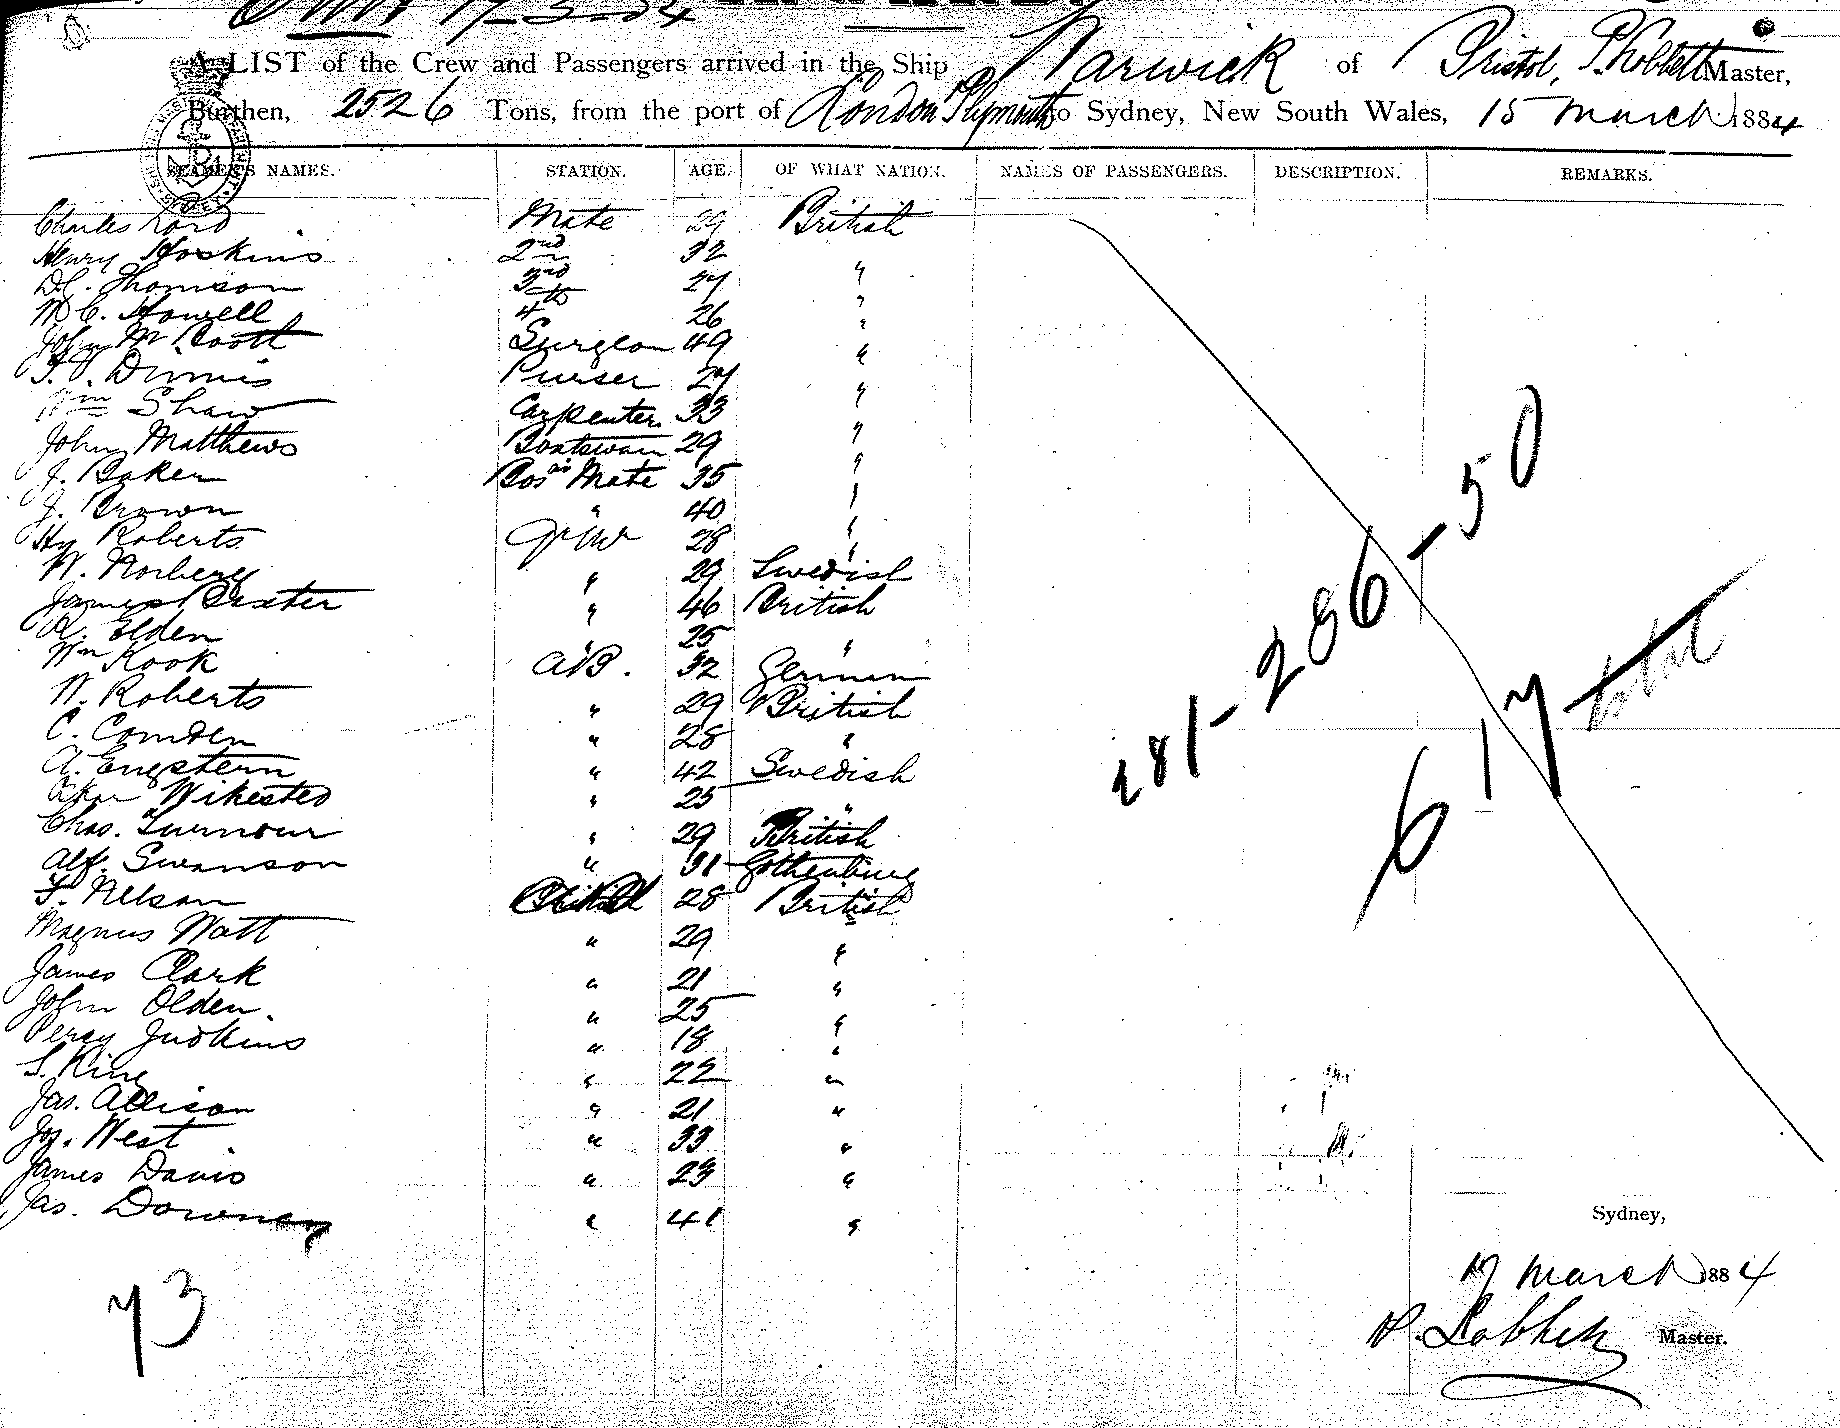 17-3-84
A LIST of the Crew and Passengers arrived in the Ship Warwick of Bristol, Master,
Burthen, 2526 Tons, from the port of London Plymouth to Sydney, New South Wales, 15 March 1884
SEAMEN'S NAMES. STATION. AGE. OF WHAT NATION. NAMES OF PASSENGERS. DESCRIPTION. REMARKS.
Charles Lord Mate 29 British
Henry Hoskins 2nd 32 "
D.C. Thomson 3rd 27 "
M C. Howell 4th 26 "
John M Coott Surgeon 49 "
Dinnis Purser 27 "
Wm Shaw Carpenter 33 "
John Matthews Boatswain 29 "
J. Baker Bos'ns Mate 35 "
J. Brown " 40 "
Hy Roberts 28 "
N. Norberg " 29 Swedish
James Baxter " 46 British
R. Elden " 25 "
Wm Kook AB. 32 German
W. Roberts " 29 British
C. Comden " 28 "
A. Engstern " 42 Swedish
Wikested " 25 "
Chas. Turnour " 29 British
Alf. Swanson " 31 Gothenburg
F. Nelson 28 British
Magnus Watt " 29 "
James Clark " 21 "
John Olden. " 25 "
Percy Judkins " 18 "
S. King " 22 "
Jas. Allison " 21 "
Jos. West " 33 "
James Davis " 23 "
Jas. Downey " 41 "
281-286-50
617 total
73
Sydney,
17 March 1884
Master.